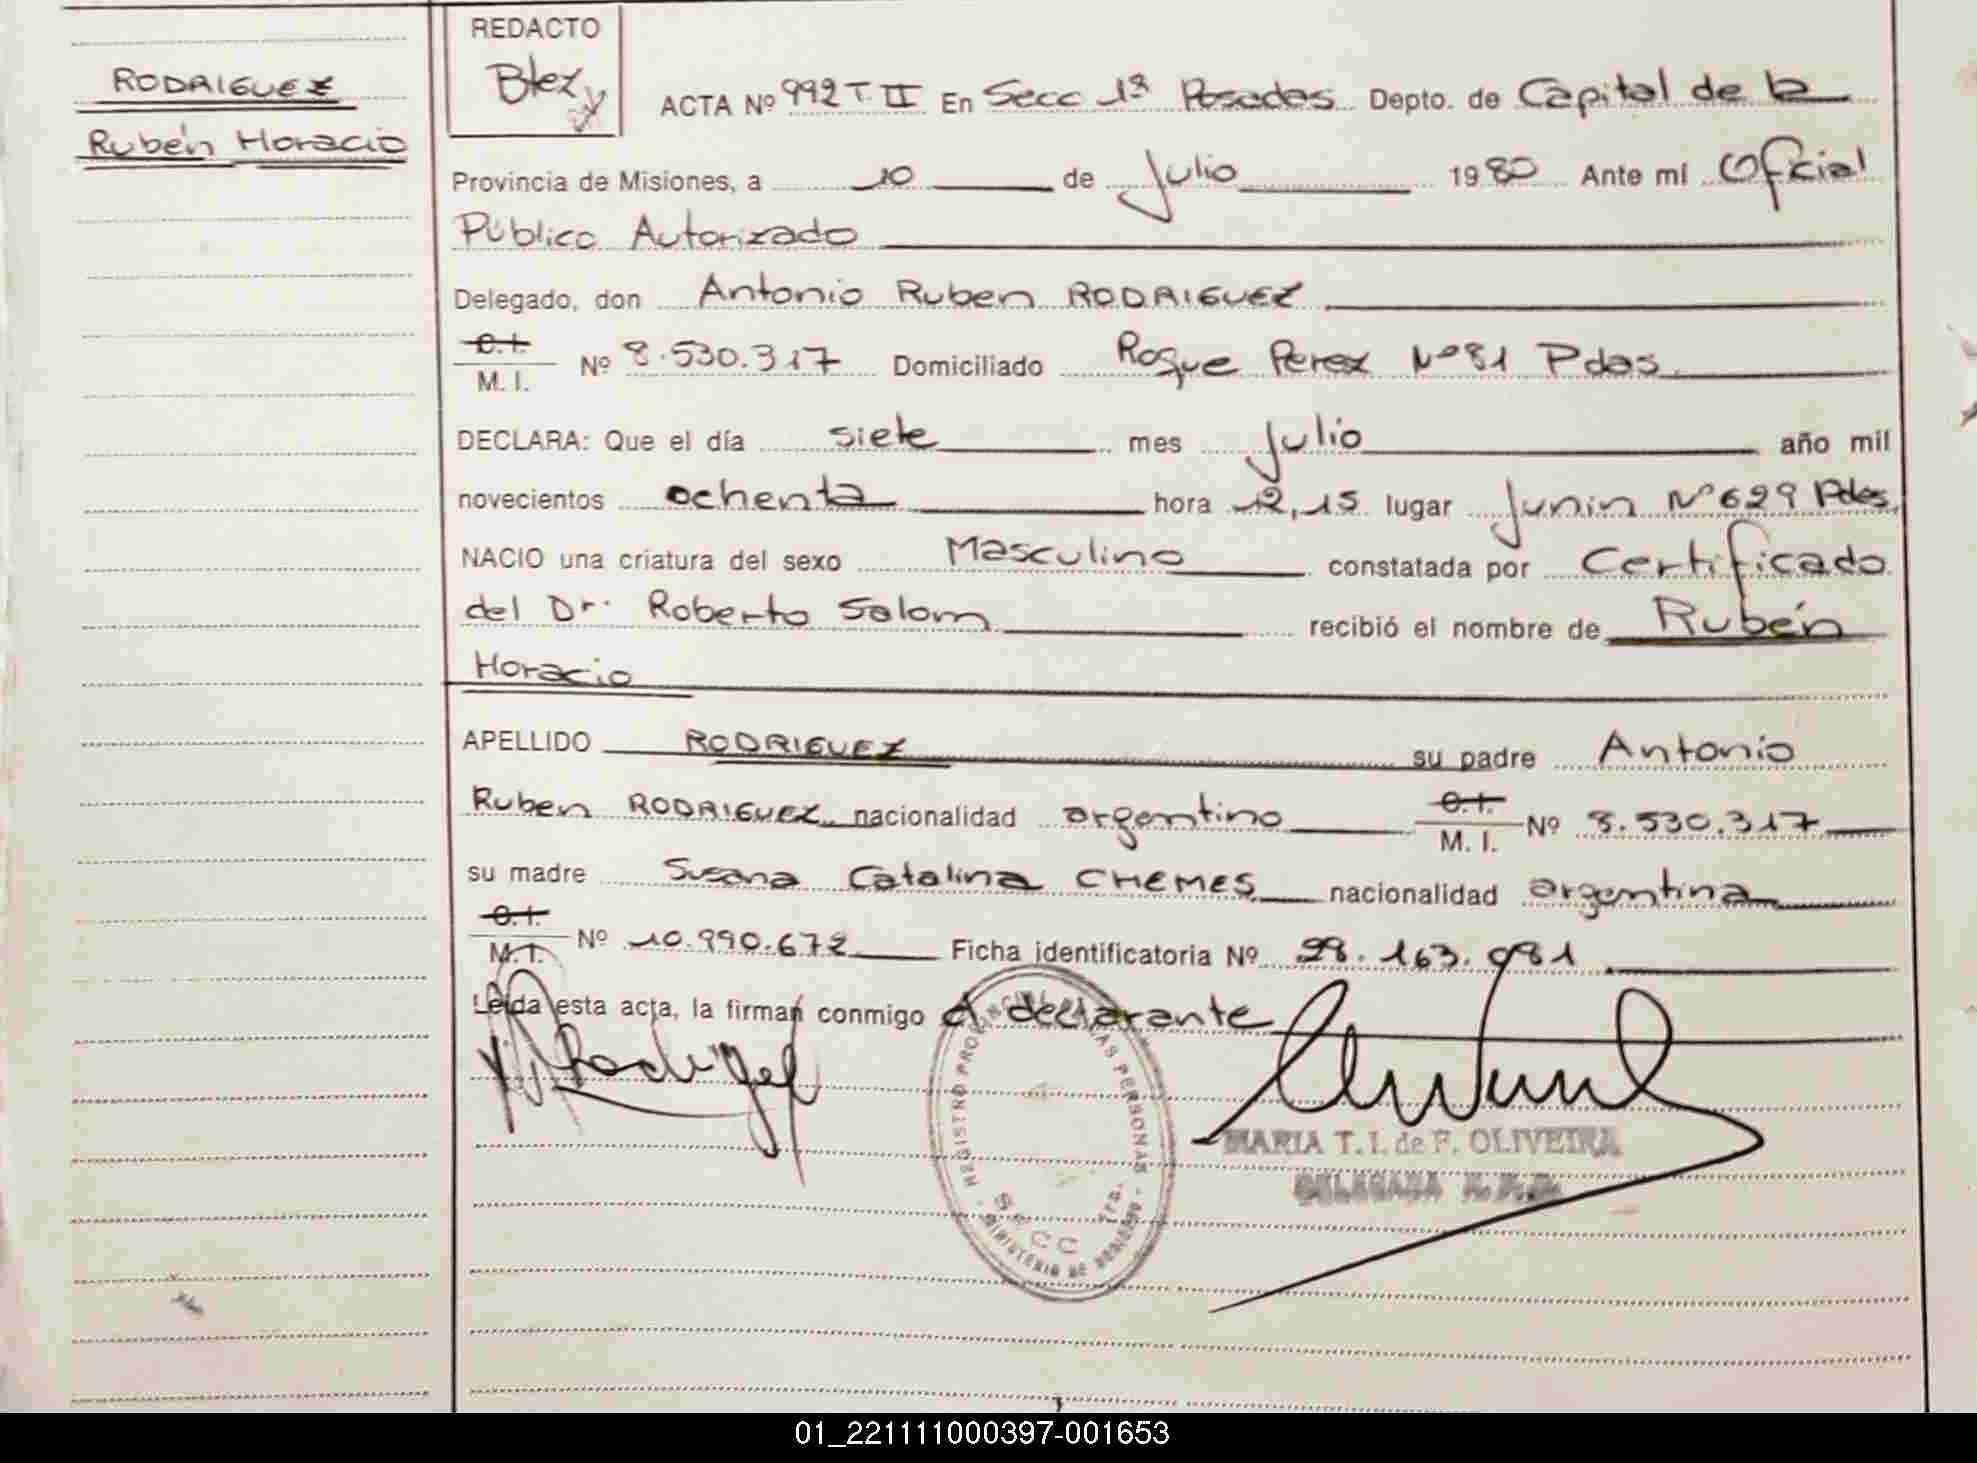 RODRIGUEZ
Rubén Horacio
REDACTO
ACTA Nº 992 T. II En Secc 1ª Posadas Depto. de Capital de la
Provincia de Misiones, a 10 de Julio 1980 Ante mí Oficial
Público Autorizado
Delegado, don Antonio Ruben RODRIGUEZ
C.I.
M. I. Nº 8.530.317 Domiciliado Roque Perez Nº 81 Pdas
DECLARA: Que el día siete mes Julio año mil
novecientos ochenta hora 12,15 lugar Junin Nº 629 Pdas.
NACIO una criatura del sexo Masculino constatada por Certificado
del Dr. Roberto Salom recibió el nombre de Rubén
Horacio
APELLIDO RODRIGUEZ su padre Antonio
Ruben RODRIGUEZ nacionalidad argentino C.I. M. I. Nº 8.530.317
su madre Susana Catalina CHEMES nacionalidad argentina
C.I.
M.I. Nº 10.990.672 Ficha identificatoria Nº 28.163.081
Leída esta acta, la firman conmigo el declarante
REGISTRO PROVINCIAL DE LAS PERSONAS
SECC 1ra.
MINISTERIO DE GOBIERNO
MARIA T. I. de F. OLIVEIRA
DELEGADA R. P. P.
01_221111000397-001653